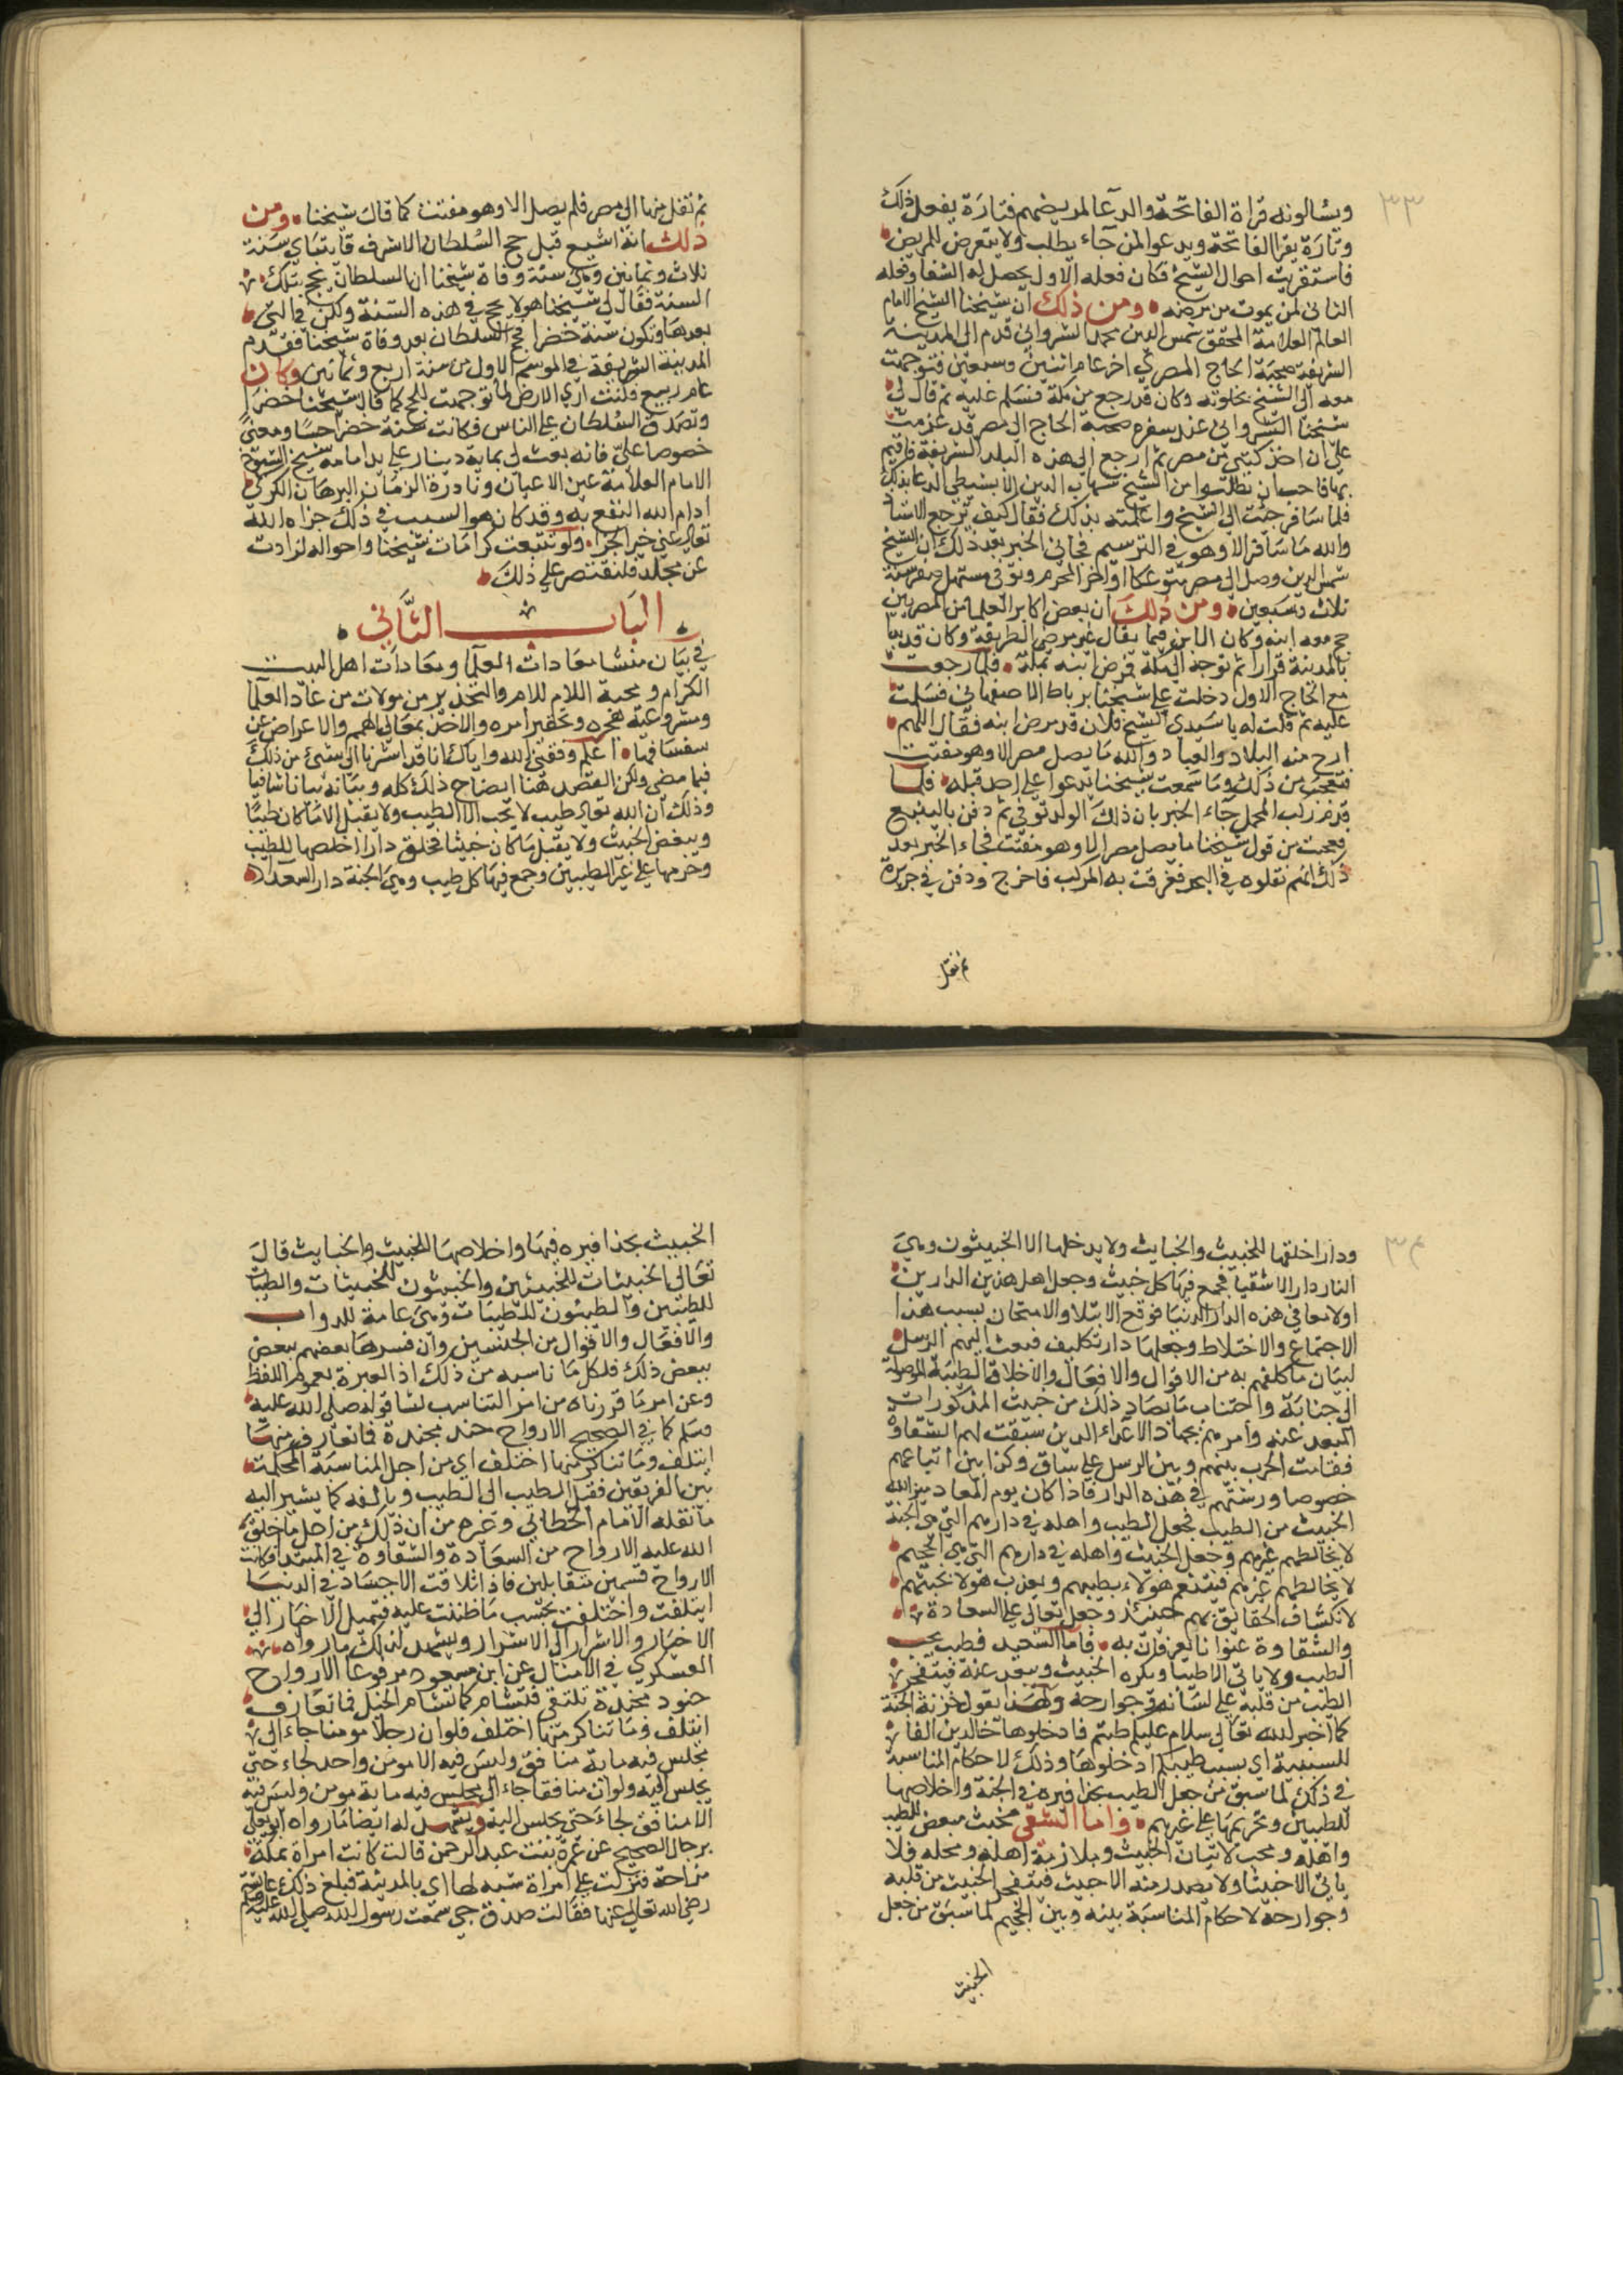 ٣٣
ويسالونه قراة الفاتحة والدعا لمريضهم فتارة يفعل ذلك
وتارة يقرا الفاتحة ويدعوا لمن جاء يطلب ولا يتعرض للمريض
فاستقريت احوال الشيخ فكان فعله الاول يحصل له الشفا وفعله
الثاني لمن يموت من مرضه ومن ذلك ان شيخنا الشيخ الامام
العالم العلامة المحقق شمس الدين محمد الشرواني قدم الى المدينة
الشريفة صحبة الحاج المصري اخر عام اثنين وسبعين فتوجهت
معه الى الشيخ بخلوته وكان قد رجع من مكة فسلم عليه ثم قال لي
شيخنا الشرواني عند سفره صحبة الحاج الى مصر قد عزمت
على ان اخذ كتبي من مصر ثم ارجع الى هذه البلد الشريفة فاقيم
بها فاحب ان تطلبوا من الشيخ شهاب الدين الابشيطي الدعا بذلك
فلما سافر جئت الى الشيخ واعلمته بذلك فقال كيف ترجع الاشيا
والله ما سافر الا وهو في الترسيم فجاني الخبر بعد ذلك ان الشيخ
شمس الدين وصل الى مصر متوعكا اواخر المحرم وتوفي مستهل صفر سنة
ثلاث وسبعين ومن ذلك ان بعض اكابر العلما من المصريين
حج معه ابنه وكان الابن فيما يقال غير مرضي الطريقة وكان قد
بالمدينة قرارا ثم توجه الى مكة فمرض ابنه بمكة فلما رجعت
مع الحاج الاول دخلت على شيخنا برباط الاصفهاني فسلمت
عليه ثم قلت له يا سيدي الشيخ فلان قد مرض ابنه فقال اللهم
ارح منه البلاد والعباد والله ما يصل مصر الا وهو مفتت
فتعجبت من ذلك وما سمعت شيخنا يدعوا على احد قبله فلما
قدم ركب المحمل جاء الخبر بان ذلك الولد توفي ثم دفن بالينبع
فعجبت من قول شيخنا ما يصل مصر الا وهو مفتت فجاء الخبر بعد
ذلك انهم نقلوه في البحر فغرقت به المركب فاخرج ودفن في جزيرة
ثم نقل
ثم نقل منها الى مصر فلم يصل الا وهو مفتت كما قال شيخنا ومن
ذلك انه اشيع قبل حج السلطان الاشرف قايتباي سنة
ثلاث وثمانين وهي سنة وفاة شيخنا ان السلطان يحج تلك
السنة فقال لي شيخنا هو لا يحج في هذه السنة ولكن في التي
بعدها وتكون سنة خضرا فحج السلطان بعد وفاة شيخنا فقدم
المدينة الشريفة في الموسم الاول من سنة اربع وثمانين وكان
عام ربيع فكنت اري الارض لما توجهت للحج كما قال شيخنا خضرا
وتصدق السلطان على الناس فكانت سنة خضرا حسا ومعنى
خصوصا علي فانه بعث لي بماية دينار على يد امامه شيخ الشيوخ
الامام العلامة عين الاعيان ونادرة الزمان البرهان الكركي
ادام الله النفع به وقد كان هو السبب في ذلك جزاه الله
تعالى عني خير الجزا ولو تتبعت كرامات شيخنا واحواله لزادت
عن مجلد فلنقتصر على ذلك
الباب الثاني
في بيان منشا معادات العلما ومعادات اهل البيت
الكرام ومحبة اللام للام والتحذير من موالات من عاد العلما
ومشروعية هجره وتحقير امره والاخذ بمعالي الهمم والاعراض عن
سفسافها اعلم وفقني الله واياك انا قد اشرنا الى شئ من ذلك
فيما مضى ولكن القصد هنا ايضاح ذلك كله وبيانه بيانا شافيا
وذلك ان الله تعالى طيب لا يحب الا الطيب ولا يقبل الا ما كان طيبا
ويبغض الخبيث ولا يقبل ما كان خبيثا فخلق دارا اخلصها للطيب
وحرمها على غير الطيبين وجمع فيها كل طيب وهي الجنة دار السعداء
٣٤
ودارا خلقها للخبيث والخبايث ولا يدخلها الا الخبيثون وهي
النار دار الاشقيا فجمع فيها كل خبيث وجعل اهل هذين الدارين
اولا معا في هذه الدار الدنيا فوقع الابتلا والامتحان بسبب هذا
الاجتماع والاختلاط وجعلها دار تكليف فبعث اليهم الرسل
لبيان ما كلفهم به من الاقوال والافعال والاخلاق الطيبة الموصلة
الى جنابه واجتناب ما يضاد ذلك من خبيث المذكورات
المبعد عنه وامرهم بجهاد الاعداء الذين سبقت لهم الشقاوة
فقامت الحرب بينهم وبين الرسل على ساق وكذا بين اتباعهم
خصوصا ورثتهم في هذه الدار فاذا كان يوم المعاد ميز الله
الخبيث من الطيب فجعل الطيب واهله في دارهم التي هي الجنة
لا يخالطهم غيرهم وجعل الخبيث واهله في دارهم التي هي الجحيم
لا يخالطهم غيرهم فينعم هولاء بطيبهم ويعذب هولا بخبثهم
لانكشاف الحقائق لهم حينئذ وجعل تعالى على السعادة
والشقاوة عنوانا يعرفان به فاما السعيد فطيب يحب
الطيب ولا ياتي الا طيبا ويكره الخبيث ويبعد عنه فيتفجر
الطيب من قلبه على لسانه وجوارحه ولهذا يقول خزنة الجنة
كما اخبر الله تعالى سلام عليكم طبتم فادخلوها خالدين الفا
للسببية اي بسبب طيبكم ادخلوها وذلك لاحكام المناسبة
في ذلك لما سبق من جعل الطيب بحذافيره في الجنة واخلاصها
للطيبين وتحريمها على غيرهم واما الشقي فخبيث مبغض للطيب
واهله ومحب لاتيان الخبيث وملازمة اهله ومحله فلا
ياتي الا خبيثا ولا يصدر منه الا خبيث فيتفجر الخبيث من قلبه
وجوارحه لاحكام المناسبة بينه وبين الجحيم لما سبق من جعل
الخبيث
الخبيث بحذافيره فيها واخلاصها للخبيث والخبايث قال
تعالى الخبيثات للخبيثين والخبيثون للخبيثات والطيبات
للطيبين والطيبون للطيبات وهي عامة للدواب
والافعال والاقوال من الجنسين وان فسرها بعضهم ببعض
ببعض ذلك فلكل ما ناسبه من ذلك اذ العبرة بعموم اللفظ
وعن امر ما قررناه من امر التناسب نشا قوله صلى الله عليه
وسلم كما في الصحيح الارواح جند مجندة فما تعارف منها
ايتلف وما تناكر منها اختلف اي من اجل المناسبة المحكمة
بين الفريقين فيميل الطيب الى الطيب ويالفه كما يشير اليه
ما نقله الامام الخطابي وغيره من ان ذلك من اجل ما خلق
الله عليه الارواح من السعادة والشقاوة في المبتدا فكانت
الارواح قسمين متقابلين فاذا تلاقت الاجساد في الدنيا
ايتلفت واختلفت بحسب ما خلقت عليه فيميل الاخيار الى
الاخيار والاشرار الى الاشرار ويشهد لذلك ما رواه
العسكري في الامثال عن ابن مسعود مرفوعا الارواح
جنود مجندة تلتقي فتشام كما تشام الخيل فما تعارف
ائتلف وما تناكر منها اختلف فلو ان رجلا مومنا جاء الى
مجلس فيه ماية منافق وليس فيه الا مومن واحد لجاء حتى
يجلس اليه ولو ان منافقا جاء الى مجلس فيه ماية مومن وليس فيه
الا منافق لجاء حتى يجلس اليه ويشهد له ايضا ما رواه ابو يعلى
برجال الصحيح عن عمرة بنت عبد الرحمن قالت كانت امراة بمكة
مزاحة فنزلت على امراة شبه لها اي بالمدينة فبلغ ذلك عائشة
رضي الله تعالى عنها فقالت صدق حبي سمعت رسول الله صلى الله عليه وسلم